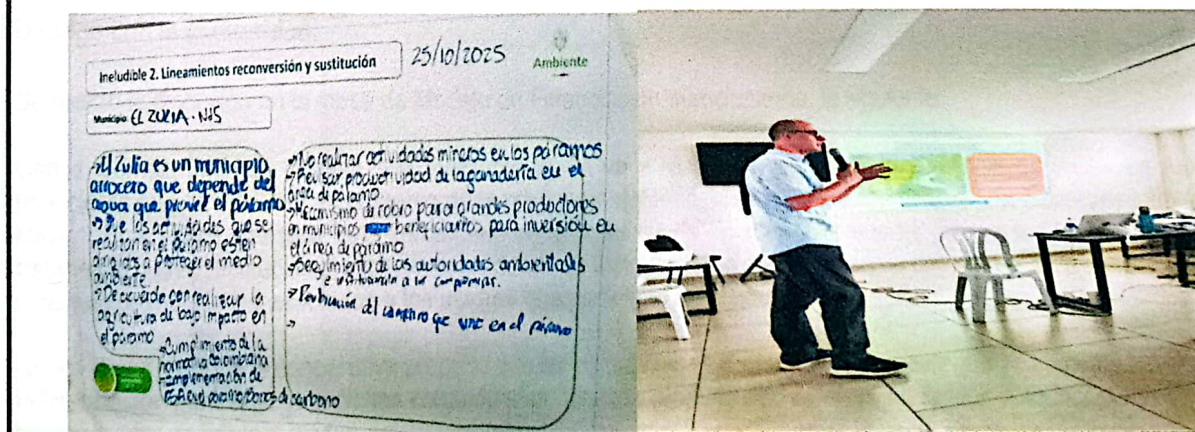 Ineludible 2. Lineamientos reconversión y sustitución
25/10/2025
Ambiente
Municipio: EL ZULIA - N/S
→ El Zulia es un municipio
arrocero que depende del
agua que provee el páramo
→ Que las actividades que se
realizan en el páramo esten
dirigidas a proteger el medio
ambiente.
→ De acuerdo con realizar la
agricultura de bajo impacto en
el páramo
→ Cumplimiento de la
normativa Colombiana
→ Implementación de
PSA en el páramo, bonos de carbono
→ No realizar actividades mineras en los páramos
→ Revisar productividad de la ganadería en el
área de páramo
→ Mecanismo de cobro para grandes productores
en municipios beneficiarios para inversión en
el área de páramo
→ Seguimiento de las autoridades ambientales
a los compromisos.
→ del campesino que vive en el páramo
→